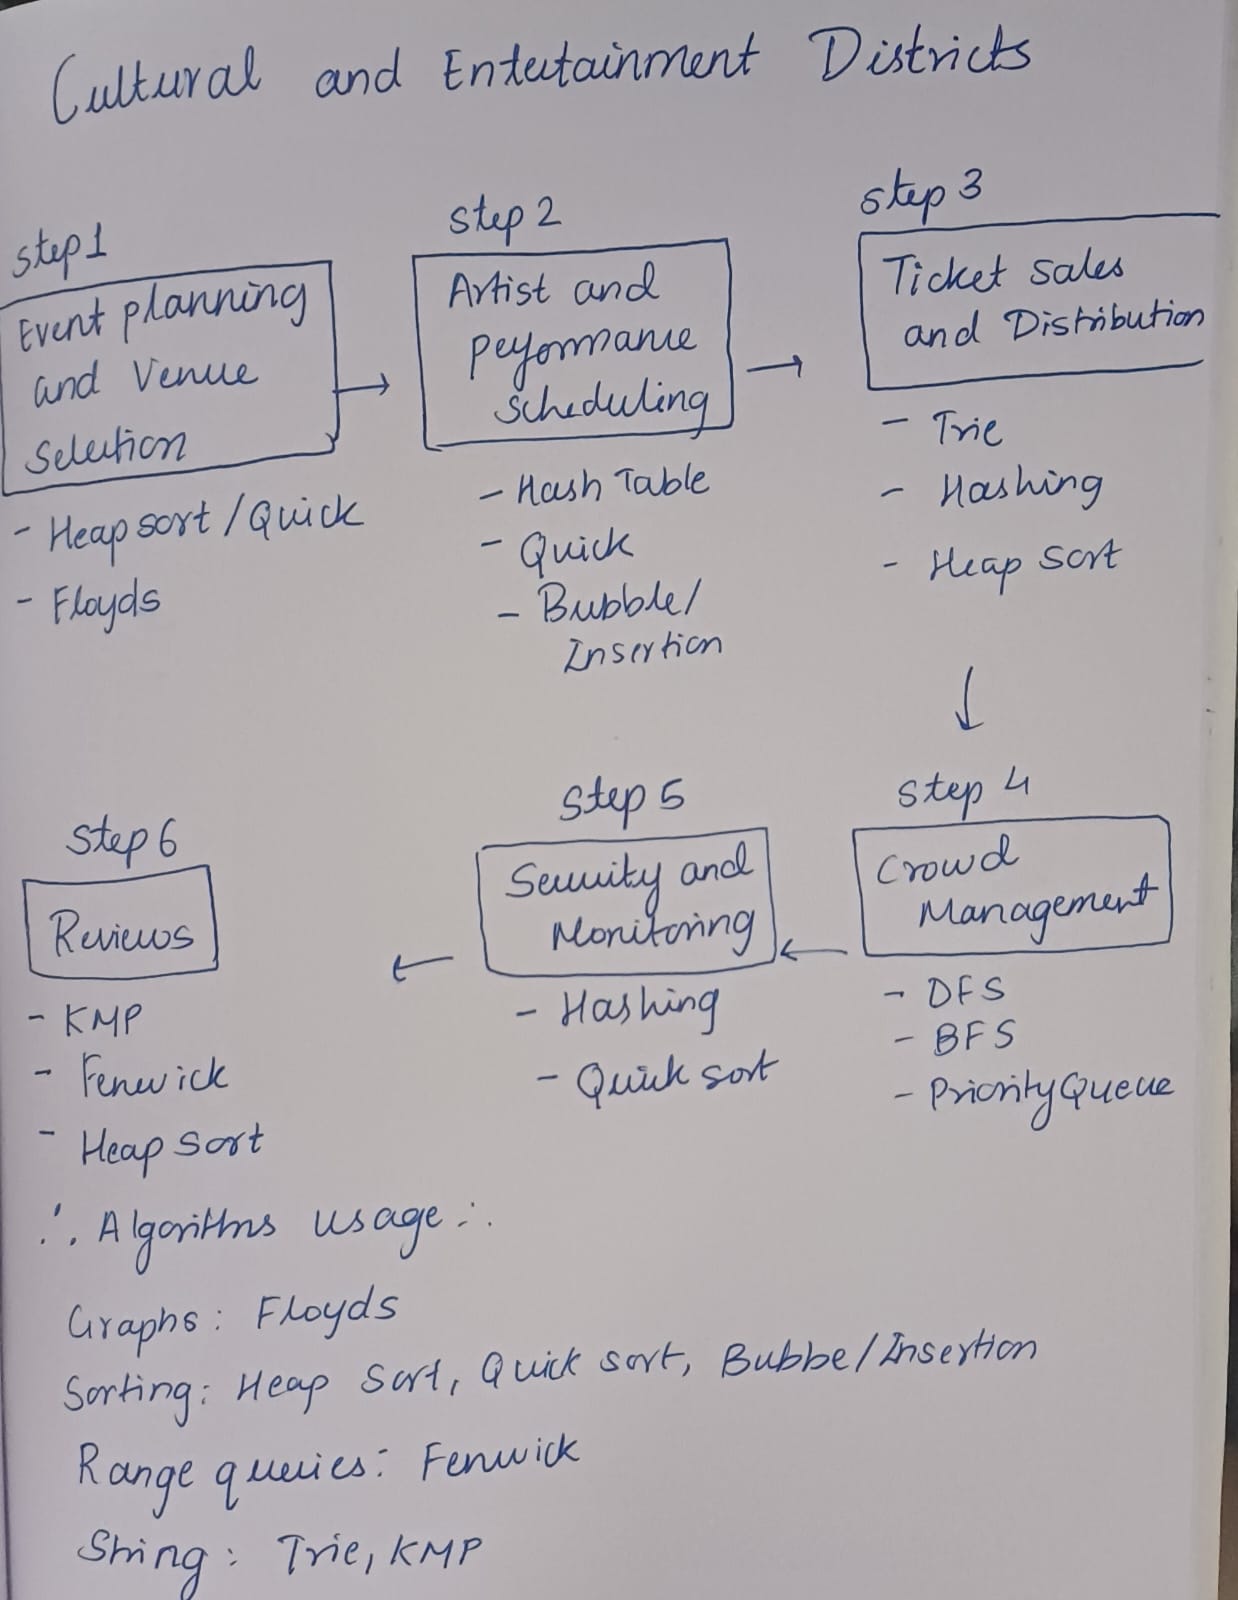 Cultural and Entertainment Districts
step 1
Event planning
and Venue
Selection
- Heap sort / Quick
- Floyds
step 2
Artist and
performance
scheduling
- Hash Table
- Quick
- Bubble/
Insertion
step 3
Ticket sales
and Distribution
- Trie
- Hashing
- Heap sort
step 4
Crowd
Management
- DFS
- BFS
- Priority Queue
step 5
Security and
Monitoring
- Hashing
- Quick sort
step 6
Reviews
- KMP
- Fenwick
- Heap sort
∴ Algorithms usage ∴
Graphs: Floyds
Sorting: Heap sort, Quick sort, Bubbe/Insertion
Range queries: Fenwick
String: Trie, KMP